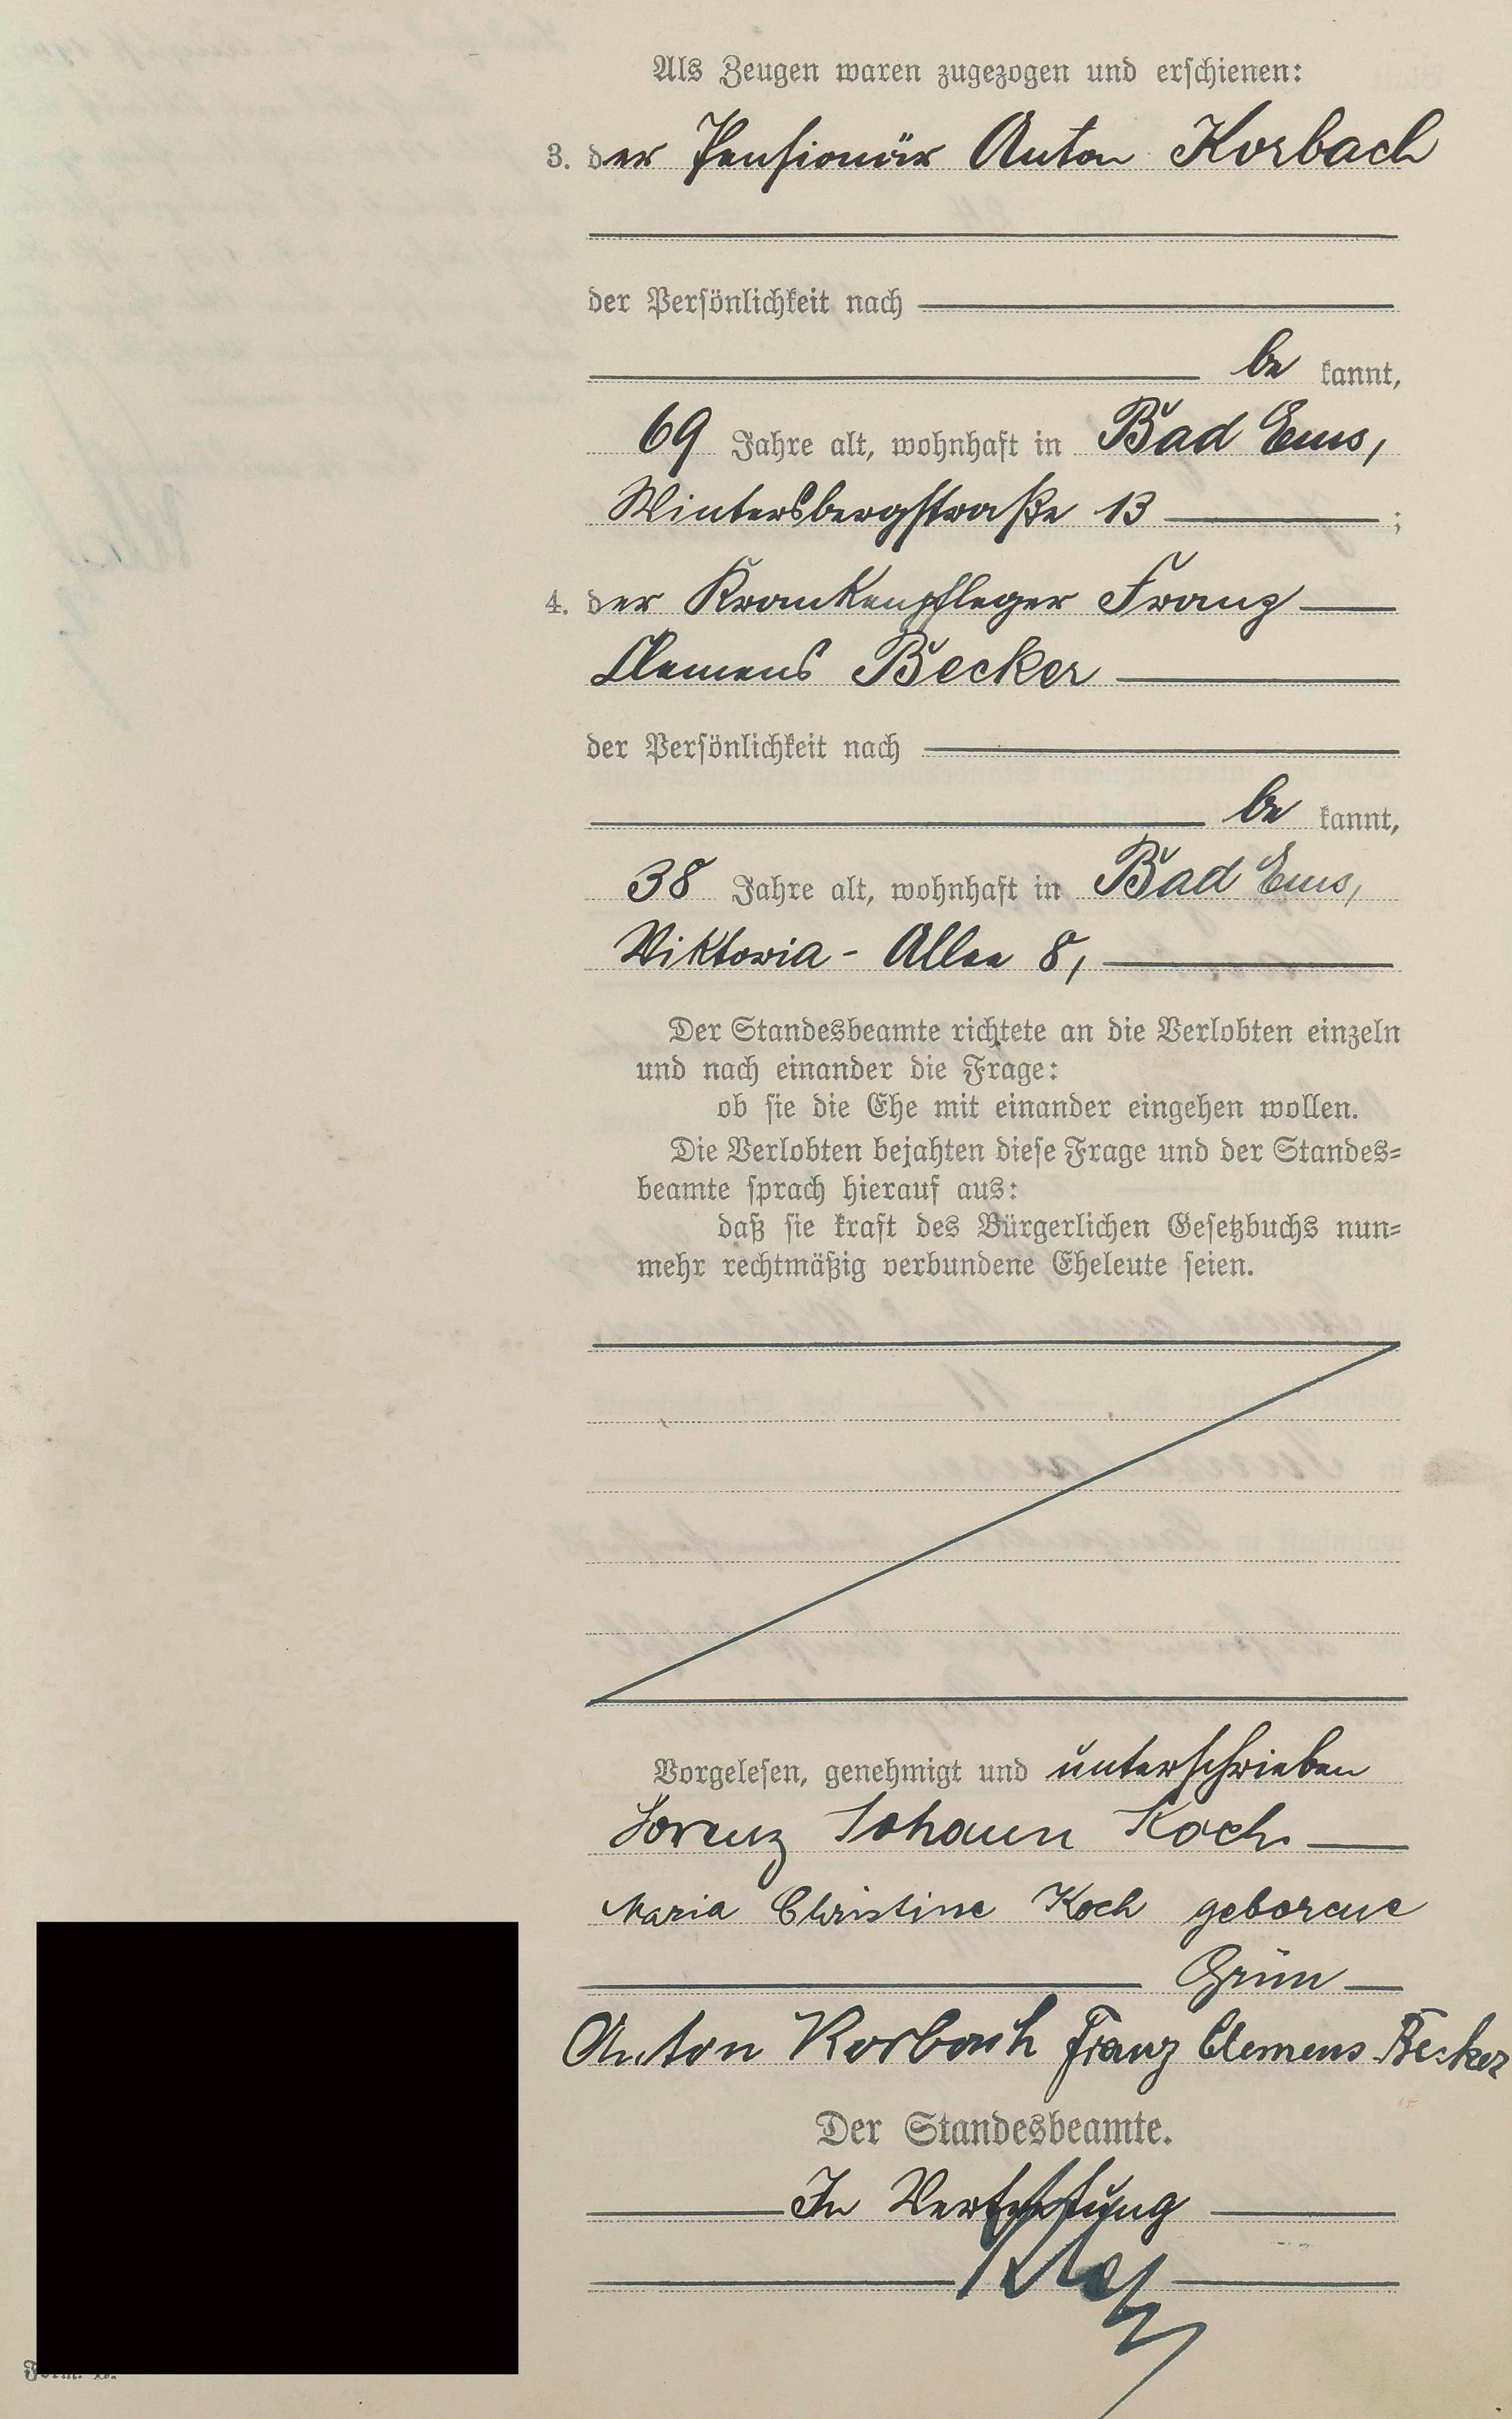 Als Zeugen waren zugezogen und erschienen:
3. der Pensionär Anton Korbach
der Persönlichkeit nach
be kannt,
69 Jahre alt, wohnhaft in Bad Ems,
Wintersbergstraße 13 ;
4. der Krankenpfleger Franz
Clemens Becker
der Persönlichkeit nach
be kannt,
38 Jahre alt, wohnhaft in Bad Ems,
Viktoria - Allee 8,
Der Standesbeamte richtete an die Verlobten einzeln
und nach einander die Frage:
ob sie die Ehe mit einander eingehen wollen.
Die Verlobten bejahten diese Frage und der Standes=
beamte sprach hierauf aus:
daß sie kraft des Bürgerlichen Gesetzbuchs nun=
mehr rechtmäßig verbundene Eheleute seien.
Vorgelesen, genehmigt und unterschrieben
Lorenz Johann Koch
Maria Christine Koch geborene
Grün
Anton Korbach Franz Clemens Becker
Der Standesbeamte.
In Vertretung